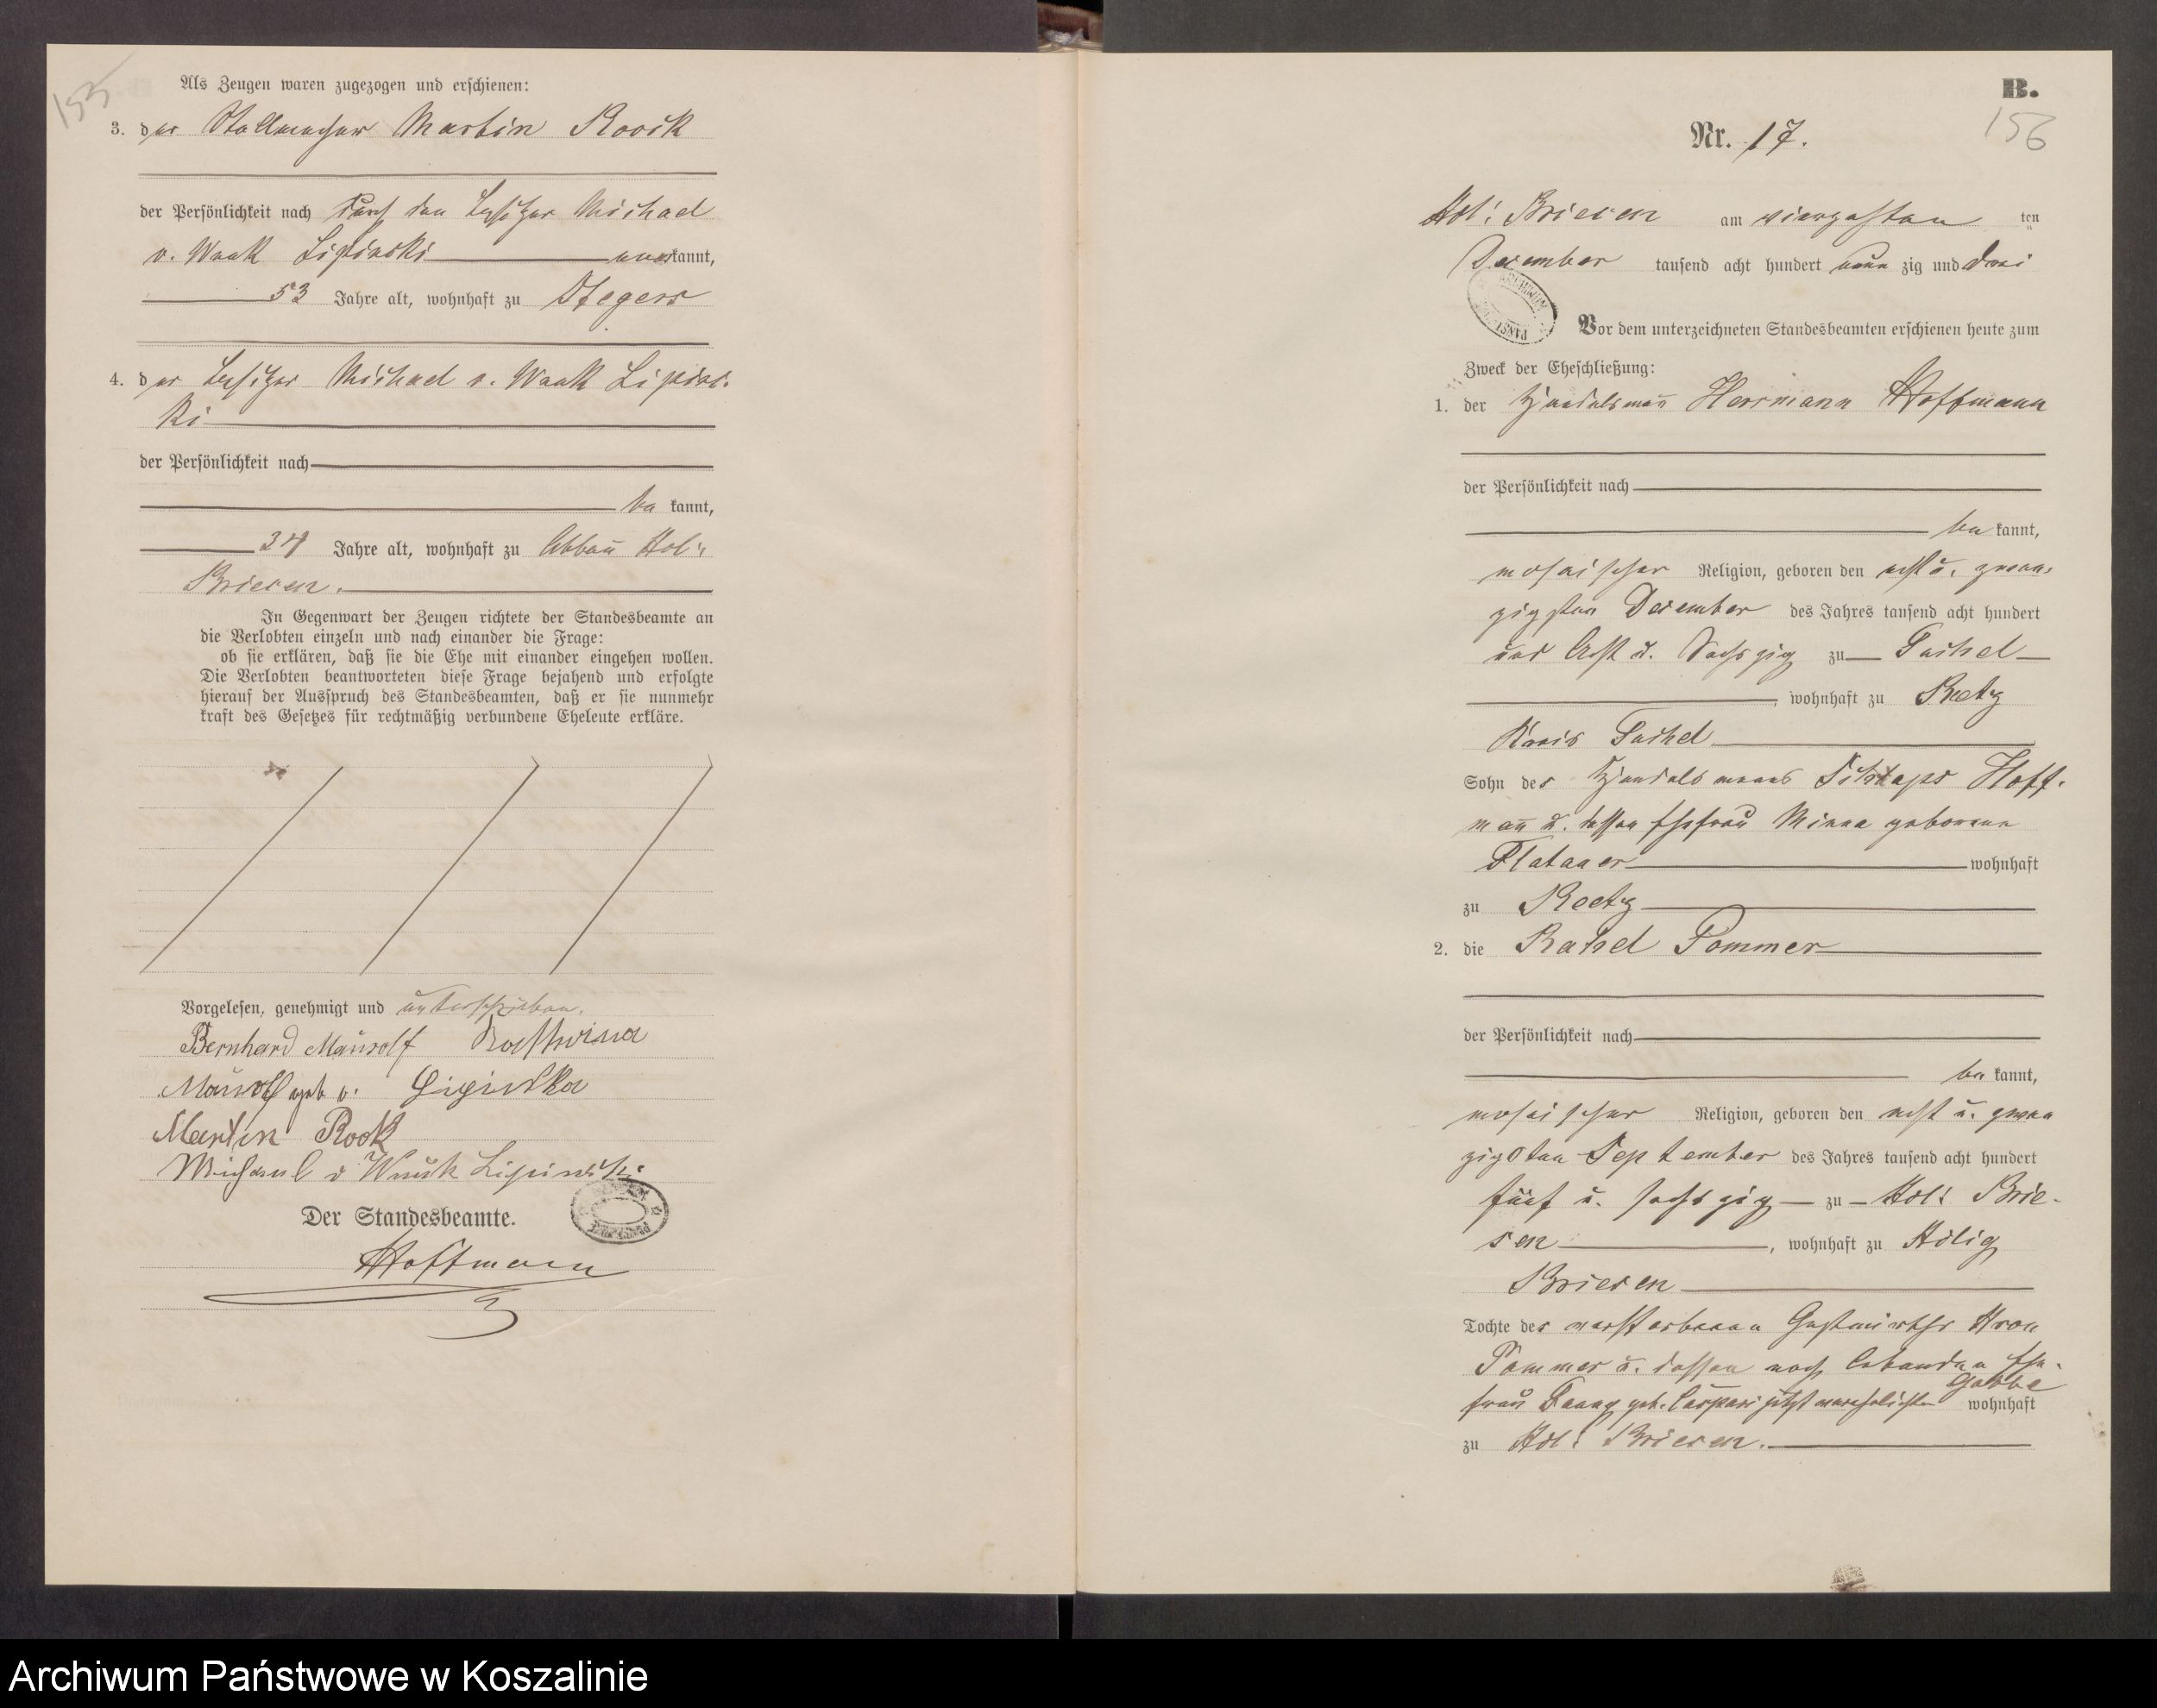 155
Als Zeugen waren zugezogen und erschienen:
3. der Stellmacher Martin Roock
der Persönlichkeit nach durch den Besitzer Michael
v. Wnuk Lipinski anerkannt,
53 Jahre alt, wohnhaft zu Stegers
4. der Besitzer Michael v. Wnuk Lipins-
ki
der Persönlichkeit nach
be kannt,
34 Jahre alt, wohnhaft zu Abbau Höl:
Briesen.
In Gegenwart der Zeugen richtete der Standesbeamte an
die Verlobten einzeln und nach einander die Frage:
ob sie erklären, daß sie die Ehe mit einander eingehen wollen.
Die Verlobten beantworteten diese Frage bejahend und erfolgte
hierauf der Ausspruch des Standesbeamten, daß er sie nunmehr
kraft des Gesetzes für rechtmäßig verbundene Eheleute erkläre.
Vorgelesen, genehmigt und unterschrieben.
Bernhard Mausolf Kathrina
Mausolf geb v. Lipinska
Martin Rook
Michael v Wnuk Lipinski
Der Standesbeamte.
Hoffmann
B.
156
Nr. 17.
Höl: Briesen am vierzehnten ten
December tausend acht hundert neun zig und drei
ARCHIWUM
Vor dem unterzeichneten Standesbeamten erschienen heute zum
Zweck der Eheschließung:
1. der Handelsmann Herrmann Hoffmann
der Persönlichkeit nach
be kannt,
mosaischer Religion, geboren den acht u. zwan-
zigsten December des Jahres tausend acht hundert
und Acht u. Sechszig zu Tuchel
, wohnhaft zu Reetz
Kreis Tuchel
Sohn des Handelsmanns Hoff-
mann u. dessen Ehefrau Minna geborene
Flatauer wohnhaft
zu Reetz
2. die Rahel Pommer
der Persönlichkeit nach
be kannt,
mosaischer Religion, geboren den acht u. zwan
zigsten September des Jahres tausend acht hundert
fünf u. sechszig zu Höl: Brie-
sen, wohnhaft zu Hölig
Briesen
Tochte des verstorbenen Gastwirths Aron
Pommer u. dessen noch lebenden Ehe-
frau Fanny geb. Caspari jetzt verehelichten Gabbe wohnhaft
zu Höl: Briesen.
Archiwum Państwowe w Koszalinie